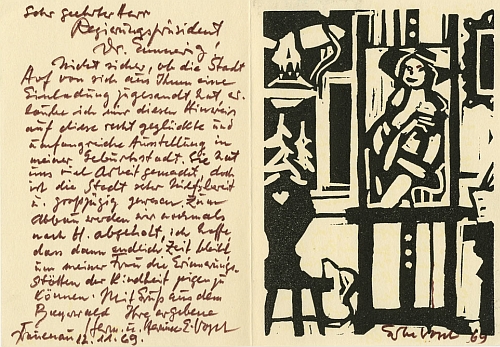 Sehr geehrter Herr
Regierungspräsident
Dr. Emmerig!
Nicht sicher, ob die Stadt
Hof von sich aus Ihnen eine
Einladung zugesandt hat er-
laube ich mir diesen Hinweis
auf diese recht geglückte und
umfangreiche Ausstellung in
meiner Geburtsstadt. Sie hat
uns viel Arbeit gemacht, doch
ist die Stadt sehr hilfsbereit
u. großzügig gewesen. Zum
Abbau werden wir nochmals
nach H. abgeholt, ich hoffe
dass dann endlich Zeit bleibt
um meiner Frau die Erinnerungs-
stätten der Kindheit zeigen zu
können. Mit Gruß aus dem
Bayrwald Ihre ergebene
Herm. u. E. Vogel
Frauenau 12.11.69.
Vogel 69